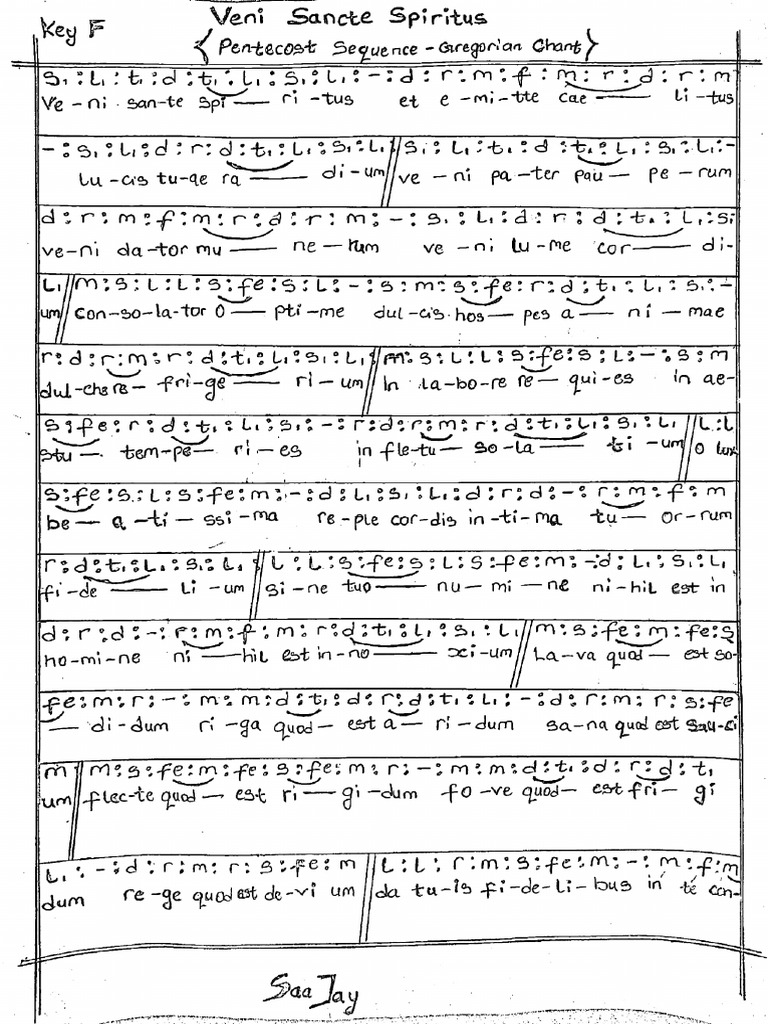 Key F
Veni Sancte Spiritus
{Pentecost Sequence - Gregorian Chant}
s₁ : l₁ : t₁ : d : t₁ : l₁ : s₁ : l₁ : - : d : r : m : f : m : r : d : r : m
Ve - ni san-te spi — ri - tus et e - mi - tte cae — li - tus
- : s₁ : l₁ : d : r : d : t₁ : l₁ : s₁ : l₁ // s₁ : l₁ : t₁ : d : t₁ : l₁ : s₁ : l₁ : -
lu - cis tu-ae ra — di - um // ve - ni pa - ter pau — pe - rum
d : r : m : f : m : r : d : r : m : - : s₁ : l₁ : d : r : d : t₁ : l₁ : s₁
ve-ni da-tor mu — ne - rum ve - ni lu - me cor — di-
l₁ // m : s : l : l : s : fe : s : l : - : s : m : s : fe : r : d : t₁ : l₁ : s₁ : -
um // con-so-la-tor o — pti-me dul-cis hos — pes a — ni - mae
r : d : r : m : r : d : t₁ : l₁ : s₁ : l₁ // m : s : l : l : s : fe : s : l : - : s : m
dul-che re - fri-ge — ri - um // In la-bo-re re — qui-es in ae-
s : fe : r : d : t₁ : l₁ : s₁ : - : r : d : r : m : r : d : t₁ : l₁ : s₁ : l₁ // l : l
stu — tem-pe - ri - es in fle-tu - so-la — ti - um // O lux
s : fe : s : l : s : fe : m : - : d : l₁ : s₁ : l₁ : d : r : d : - : r : m : f : m
be — a - ti - ssi - ma re-ple cor-dis in-ti-ma tu — or-rum
r : d : t₁ : l₁ : s₁ : l₁ // l : l : s : fe : s : l : s : fe : m : - : d : l₁ : s₁ : l₁
fi-de — li - um // si - ne tuo — nu - mi - ne ni - hil est in
d : r : d : - : r : m : f : m : r : d : t₁ : l₁ : s₁ : l₁ // m : s : fe : m : fe : s
ho-mi-ne ni — hil est in-no — xi-um // La-va quod — est so-
fe : m : r : - : m : m : d : t₁ : d : r : d : t₁ : l₁ : - : d : r : m : r : s : fe
— di-dum ri - ga quod — est a — ri-dum sa-na quod est sau-ci
m // m : s : fe : m : fe : s : fe : m : r : - : m : m : d : t₁ : d : r : d : t₁
um // flec-te quod — est ri — gi - dum fo - ve quod — est fri - gi
l₁ : - : d : r : m : r : s : fe : m // l : l : r : m : s : fe : m : - : m : f : m
dum re-ge quod est de-vi um // da tu-is fi-de-li-bus in te con-
Saa Jay